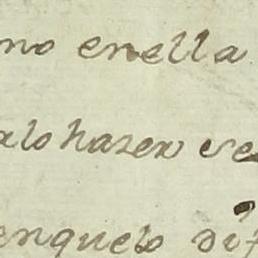 no enella
lo hazer ve
enquelo dif